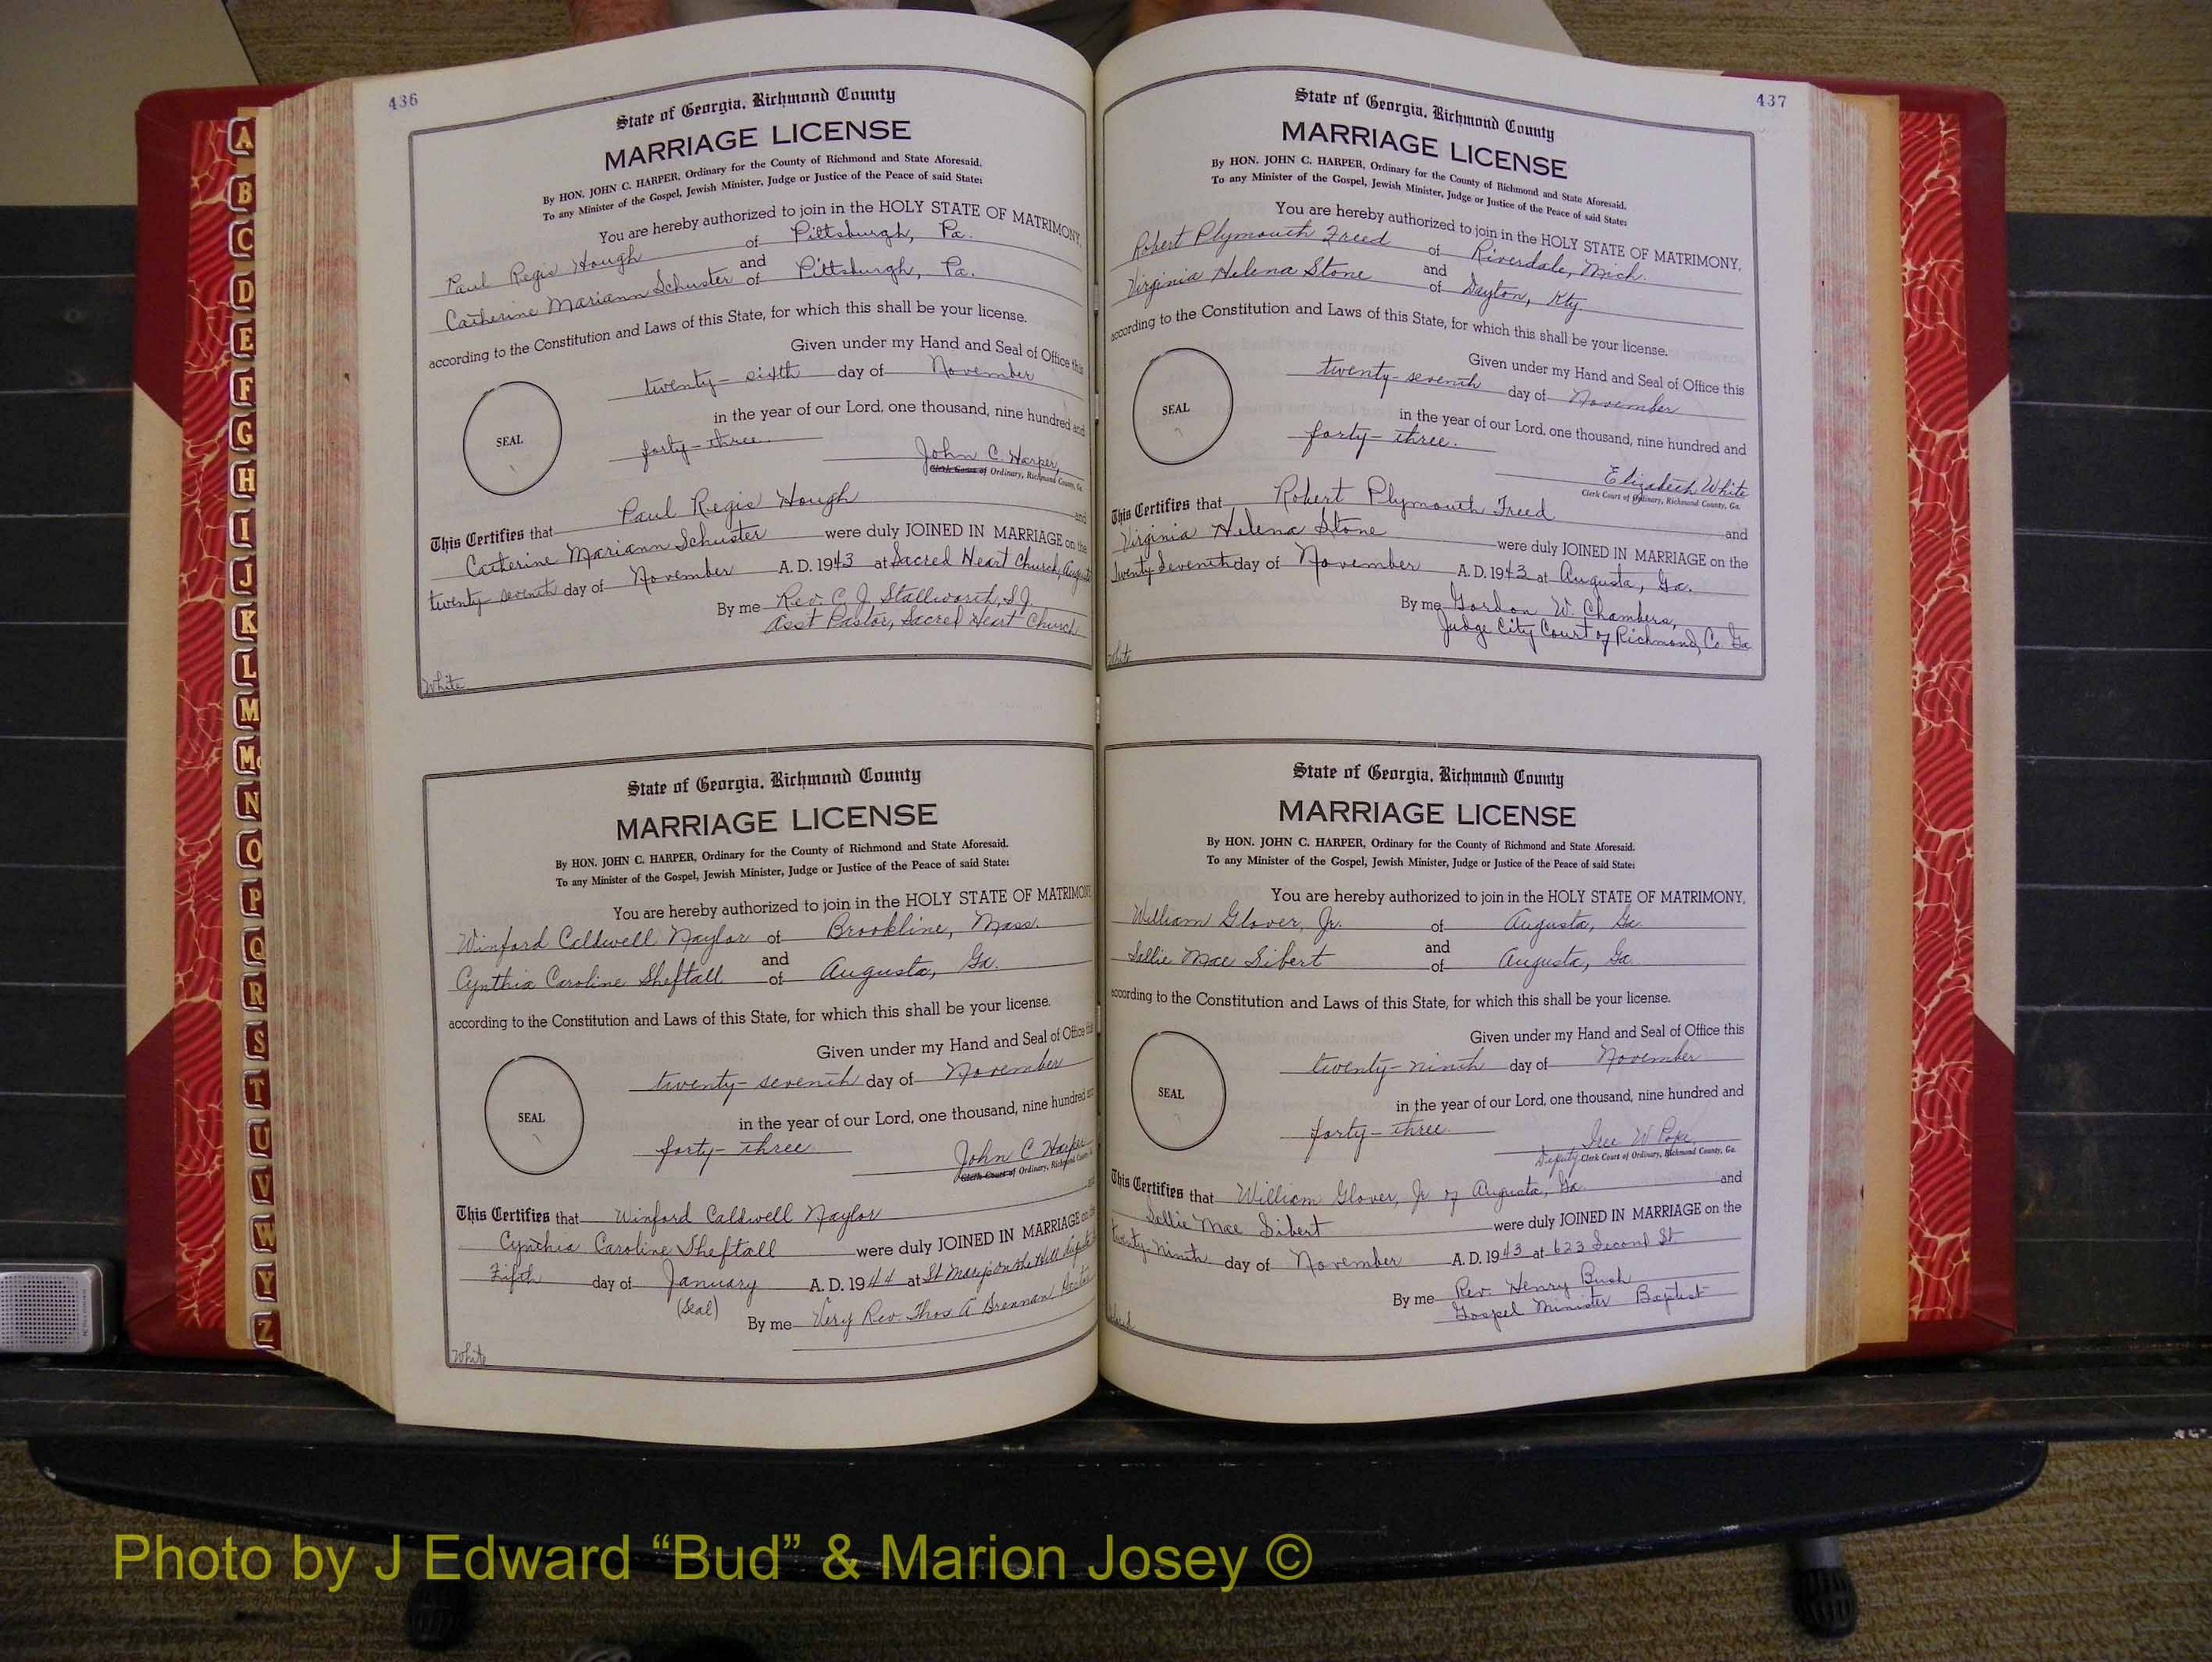 436
State of Georgia, Richmond County
MARRIAGE LICENSE
By HON. JOHN C. HARPER, Ordinary for the County of Richmond and State Aforesaid.
To any Minister of the Gospel, Jewish Minister, Judge or Justice of the Peace of said State:
You are hereby authorized to join in the HOLY STATE OF MATRIMONY,
Paul Regis Hough of Pittsburgh, Pa.
and
Catherine Mariann Schuster of Pittsburgh, Pa.
according to the Constitution and Laws of this State, for which this shall be your license.
Given under my Hand and Seal of Office this
twenty-sixth day of November
in the year of our Lord, one thousand, nine hundred and
SEAL
forty-three.
John C. Harper,
Clerk Court of Ordinary, Richmond County, Ga.
This Certifies that Paul Regis Hough and
Catherine Mariann Schuster were duly JOINED IN MARRIAGE on the
twenty seventh day of November A. D. 1943 at Sacred Heart Church, August
By me Rev. C. J. Stallworth, S.J.
Asst Pastor, Sacred Heart Church
White
State of Georgia, Richmond County
MARRIAGE LICENSE
By HON. JOHN C. HARPER, Ordinary for the County of Richmond and State Aforesaid.
To any Minister of the Gospel, Jewish Minister, Judge or Justice of the Peace of said State:
You are hereby authorized to join in the HOLY STATE OF MATRIMONY
Winford Caldwell Naylor of Brookline, Mass.
and
Cynthia Caroline Sheftall of Augusta, Ga.
according to the Constitution and Laws of this State, for which this shall be your license.
Given under my Hand and Seal of Office this
twenty-seventh day of November
in the year of our Lord, one thousand, nine hundred and
SEAL
forty-three.
John C Harper
Clerk Court of Ordinary, Richmond County
This Certifies that Winford Caldwell Naylor and
Cynthia Caroline Sheftall were duly JOINED IN MARRIAGE on the
Fifth day of January A. D. 1944 at St Marys on the Hill
(Seal)
By me Very Rev. Thos A Brennan,
White
437
State of Georgia, Richmond County
MARRIAGE LICENSE
By HON. JOHN C. HARPER, Ordinary for the County of Richmond and State Aforesaid.
To any Minister of the Gospel, Jewish Minister, Judge or Justice of the Peace of said State:
You are hereby authorized to join in the HOLY STATE OF MATRIMONY,
Robert Plymouth Freed of Riverdale, Mich.
and
Virginia Helena Stone of Dayton, Kty.
according to the Constitution and Laws of this State, for which this shall be your license.
Given under my Hand and Seal of Office this
twenty-seventh day of November
in the year of our Lord, one thousand, nine hundred and
SEAL
forty-three.
Elizabeth White
Clerk Court of Ordinary, Richmond County, Ga.
This Certifies that Robert Plymouth Freed and
Virginia Helena Stone were duly JOINED IN MARRIAGE on the
Twenty Seventh day of November A. D. 1943 at Augusta, Ga.
By me Gordon W. Chambers,
Judge City Court of Richmond, Co. Ga
White
State of Georgia, Richmond County
MARRIAGE LICENSE
By HON. JOHN C. HARPER, Ordinary for the County of Richmond and State Aforesaid.
To any Minister of the Gospel, Jewish Minister, Judge or Justice of the Peace of said State:
You are hereby authorized to join in the HOLY STATE OF MATRIMONY,
William Glover, Jr. of Augusta, Ga.
and
Sallie Mae Sibert of Augusta, Ga.
according to the Constitution and Laws of this State, for which this shall be your license.
Given under my Hand and Seal of Office this
twenty-ninth day of November
in the year of our Lord, one thousand, nine hundred and
SEAL
forty-three.
W Pope
Deputy Clerk Court of Ordinary, Richmond County, Ga.
This Certifies that William Glover, Jr of Augusta, Ga and
Sallie Mae Sibert were duly JOINED IN MARRIAGE on the
twenty-ninth day of November A. D. 1943 at 623 Second St
By me Rev. Henry Bush
Gospel Minister Baptist
A
B
C
D
E
F
G
H
I
J
K
L
M
Mc
N
O
P
Q
R
S
T
U
V
W
Y
Z
Photo by J Edward “Bud” & Marion Josey ©